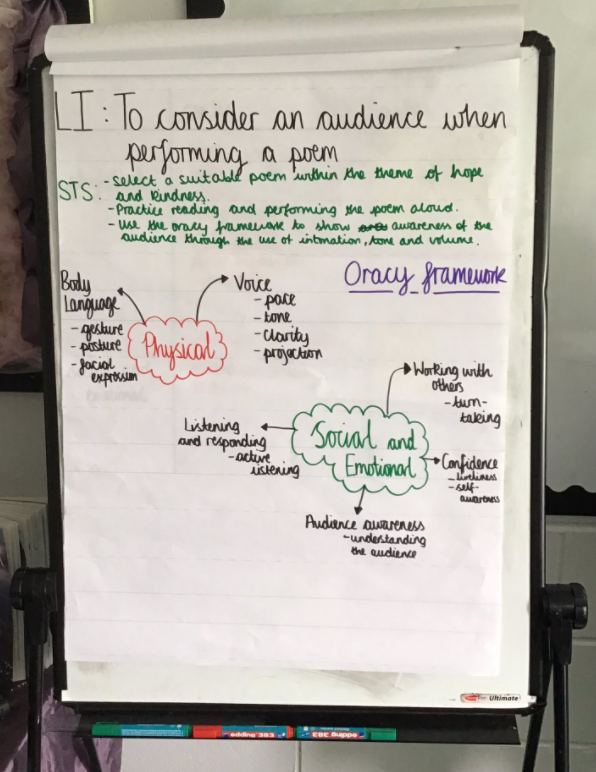 LI: To consider an audience when
performing a poem
STS: - select a suitable poem within the theme of hope
and kindness.
- Practice reading and performing the poem aloud.
- Use the oracy framework to show awareness of the
audience through the use of intonation, tone and volume.
Oracy framework
Physical
Body
Language
- gesture
- posture
- facial
expression
Voice
- pace
- tone
- clarity
- projection
Social and
Emotional
Working with
others
- turn-
taking
Listening
and responding
- active
listening
Confidence
- liveliness
- self-
awareness
Audience awareness
- understanding
the audience
Ultimate
edding 383
edding 383